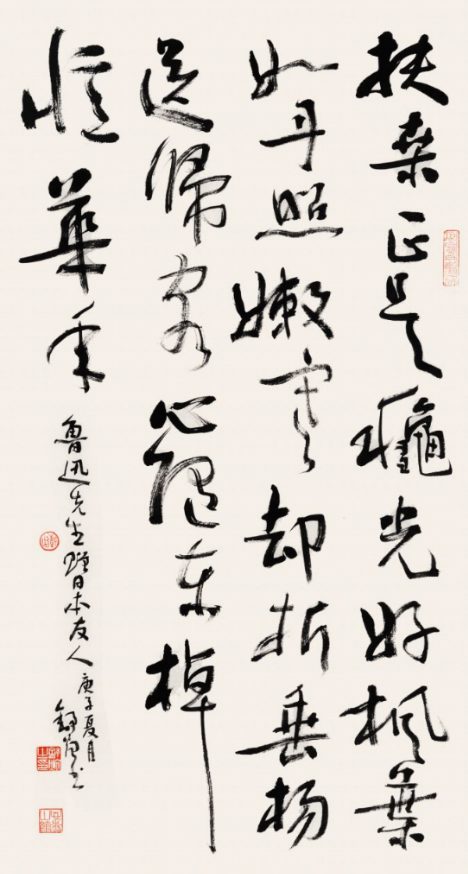 扶桑正是龝光好枫葉
如丹照嫩寒却折垂杨
送歸客心随东棹
憶華年
鲁迅先生赠日本友人
庚子夏月